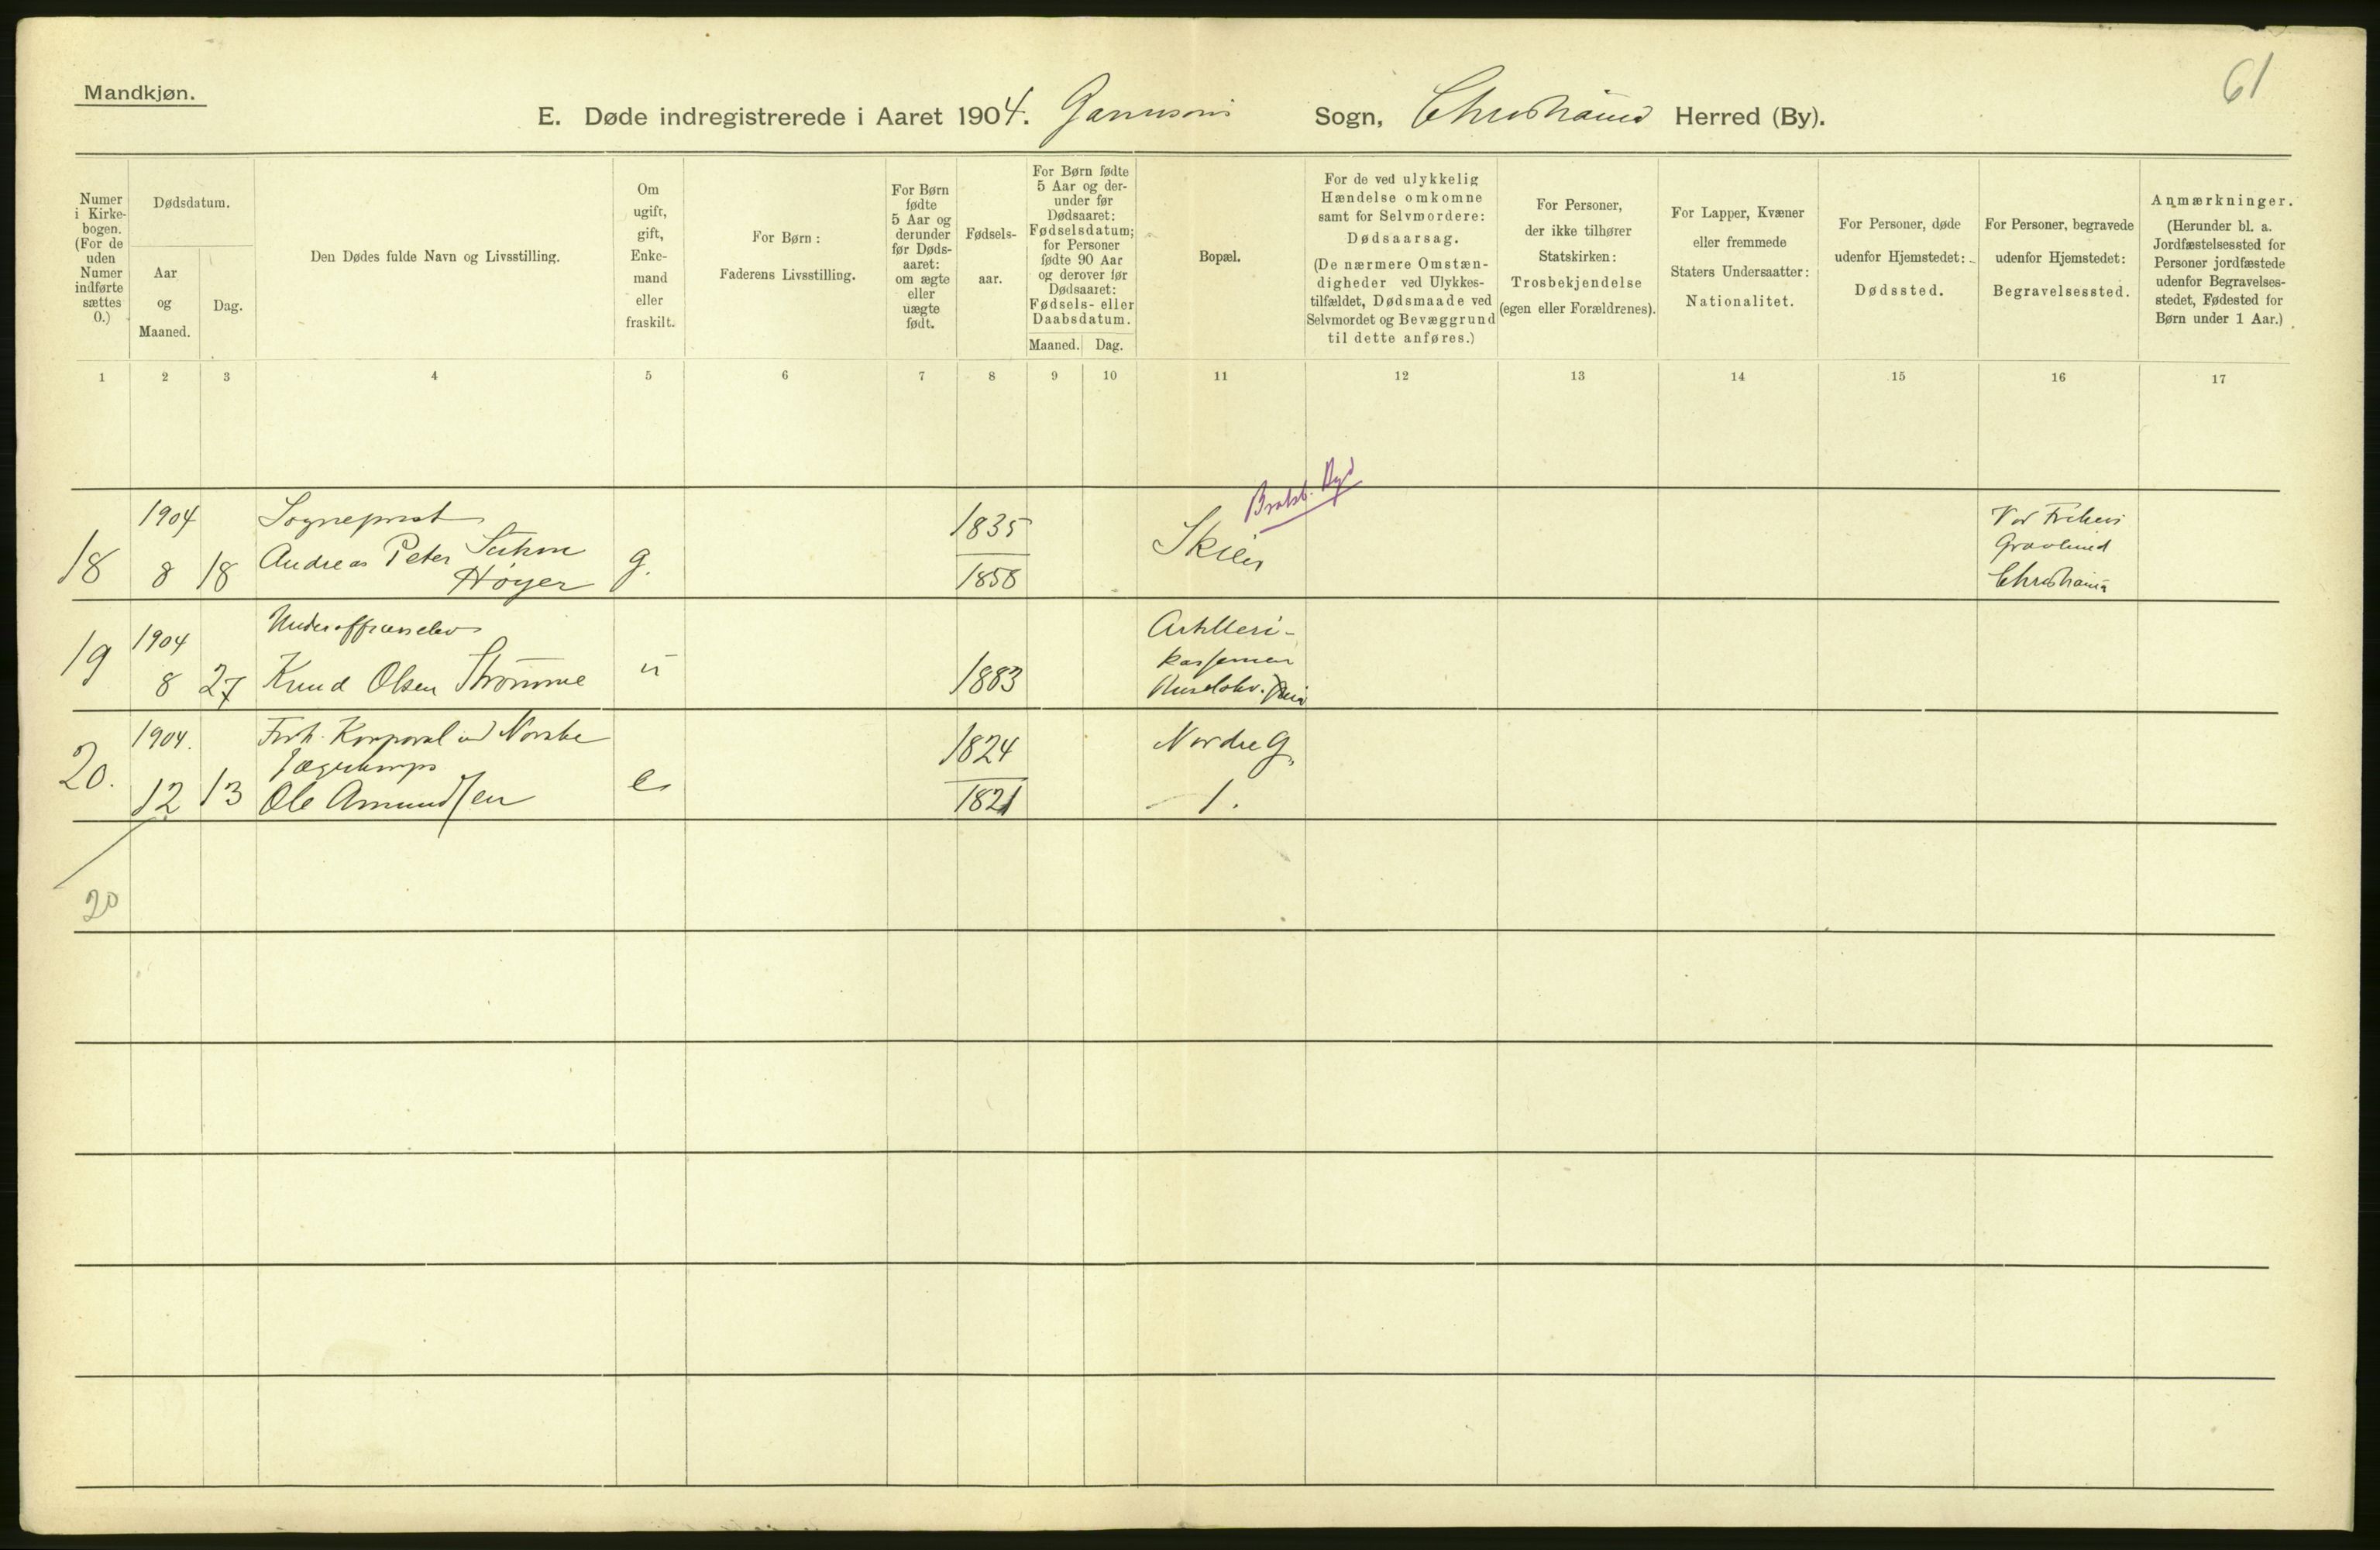 61
Mandkjøn.
E. Døde indregistrerede i Aaret 1904. Garnisons Sogn, Christiania Herred (By).
Numer i Kirke-bogen. (For de uden Numer indførte sættes 0.)
Dødsdatum.
Aar og Maaned.
Dag.
Den Dødes fulde Navn og Livsstilling.
Om ugift, gift, Enke-mand eller fraskilt.
For Børn:
Faderens Livsstilling.
For Børn fødte 5 Aar og derunder før Døds-aaret: om ægte eller uægte født.
Fødsels-aar.
For Børn fødte 5 Aar og der-under før Dødsaaret: Fødselsdatum; for Personer fødte 90 Aar og derover før Dødsaaret: Fødsels- eller Daabsdatum.
Maaned. Dag.
Bopæl.
For de ved ulykkelig Hændelse omkomne samt for Selvmordere: Dødsaarsag.
(De nærmere Omstæn-digheder ved Ulykkes-tilfældet, Dødsmaade ved Selvmordet og Bevæggrund til dette anføres.)
For Personer, der ikke tilhører Statskirken: Trosbekjendelse (egen eller Forældrenes).
For Lapper, Kvæner eller fremmede Staters Undersaatter: Nationalitet.
For Personer, døde udenfor Hjemstedet: Dødssted.
For Personer, begravede udenfor Hjemstedet: Begravelsessted.
Anmærkninger.
(Herunder bl. a. Jordfæstelsessted for Personer jordfæstede udenfor Begravelses-stedet, Fødested for Børn under 1 Aar.)
1 2 3 4 5 6 7 8 9 10 11 12 13 14 15 16 17
Bratsb.
1904 Sogneprest 1835 Vor Frelsers
18 8 18 Andreas Peter Høyer g. 1858 Skien Gravlund
Christiania
1904 Underofficerselev Artilleri-
19 8 27 Knud Olsen Strømme u 1883 kasernen
1904. Forh. Korporal ved Norske 1824 Nordre G.
Jægerkorps
20. 12 13 Ole Amundsen e 1821 1.
20